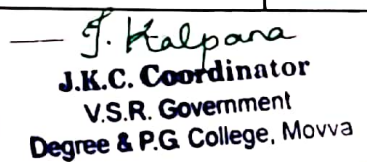 J. Kalpana
J.K.C. Coordinator
V.S.R. Government
Degree & P.G. College, Movva